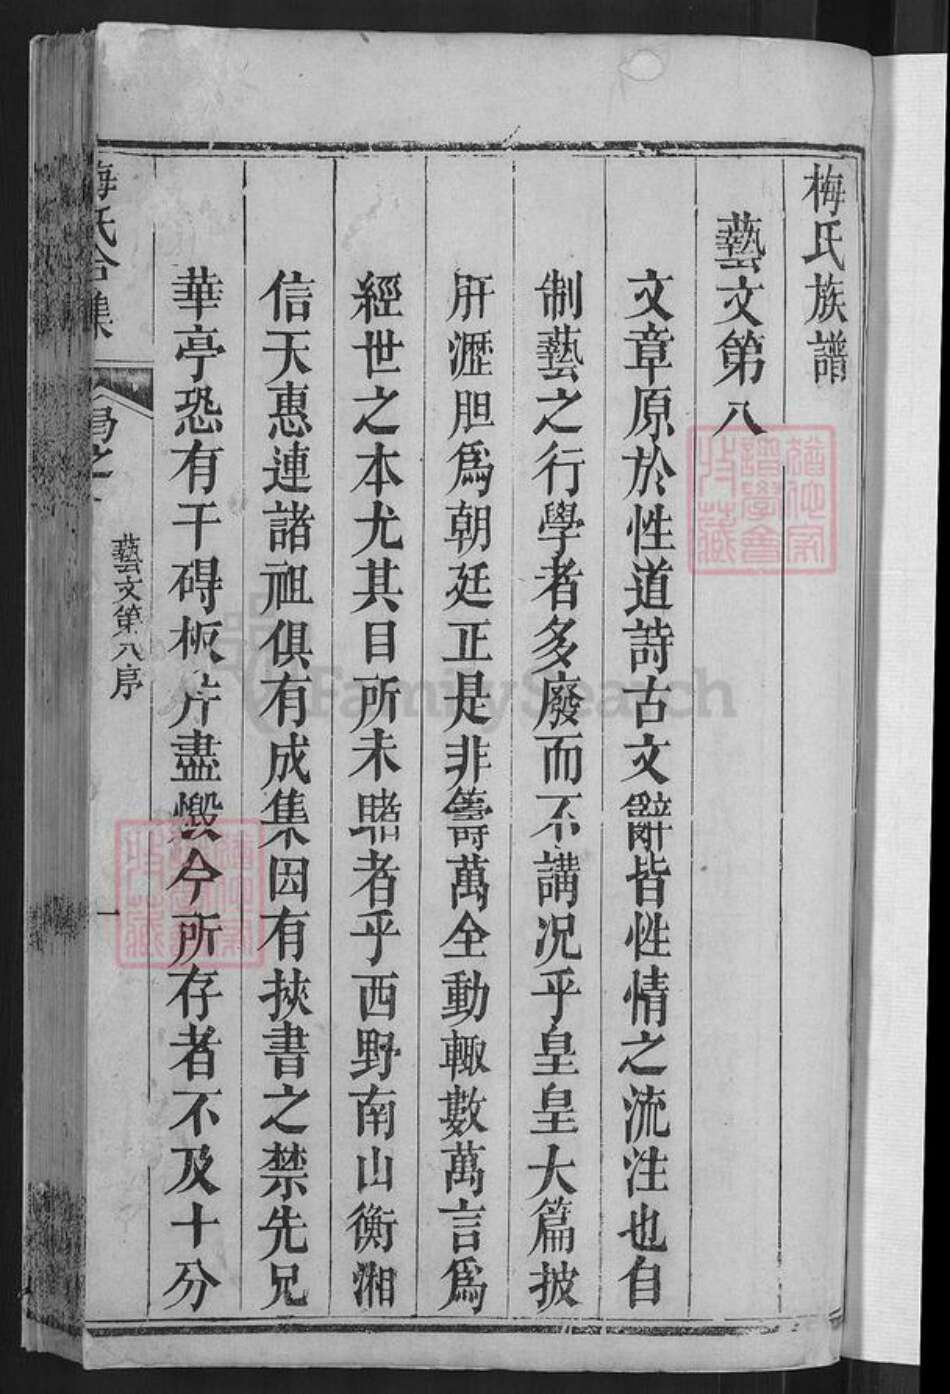 梅氏族譜
藝文第八
文章原於性道詩古文辭皆性情之流注也自
制藝之行學者多廢而不講况乎皇皇大篇披
肝瀝胆爲朝廷正是非籌萬全動輙數萬言爲
經世之本尤其目所未睹者乎西野南山衡湘
信天惠連諸祖俱有成集因有挾書之禁先兄
華亭恐有干碍板片盡燬今所存者不及十分
梅氏合集
藝文第八序
一
FamilySearch